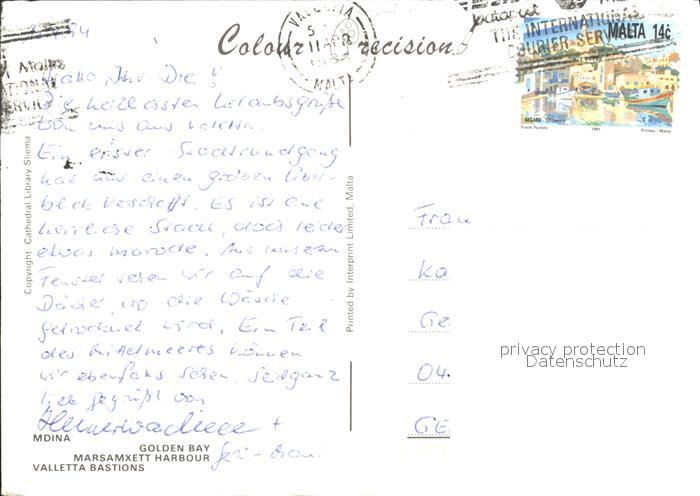 94
VALLETTA
MALTA
Colour Precision
THE INTERNATIONAL
COURIER SERV
MALTA 14c
MGARR
Frank Portelli
1991
Printex - Malta
Hallo, Ihr Drei!
Die herzlichsten Urlaubsgrüße
von uns aus Valetta.
Ein erster Stadtrundgang
hat uns einen groben Über-
blick verschafft. Es ist eine
herrliche Stadt, doch leider
etwas marode. Aus unserem
Fenster sehen wir auf die
Dächer, wo die Wäsche
getrocknet wird. Ein Teil
des Mittelmeeres können
wir ebenfalls sehen. Seid ganz
lieb gegrüßt von
+
Copyright Cathedral Library Sliema
Printed by Interprint Limited, Malta
Frau
Ka
Ge
04.
GE
privacy protection
Datenschutz
MDINA
GOLDEN BAY
MARSAMXETT HARBOUR
VALLETTA BASTIONS